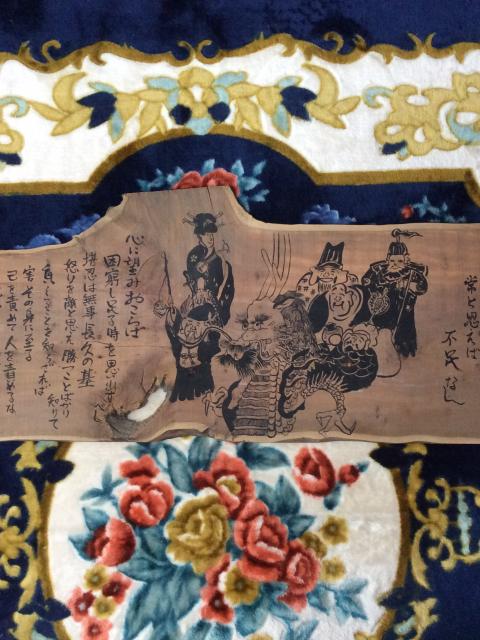 常と思えば
不足なし
心に望みおこらば
困窮し足る時を思出すべし
堪忍は無事長久の基
怒りを敵と思え勝つことばかり
知りて
負くることを知らざれば
害其の身に至る
己を責めて人を責めるな